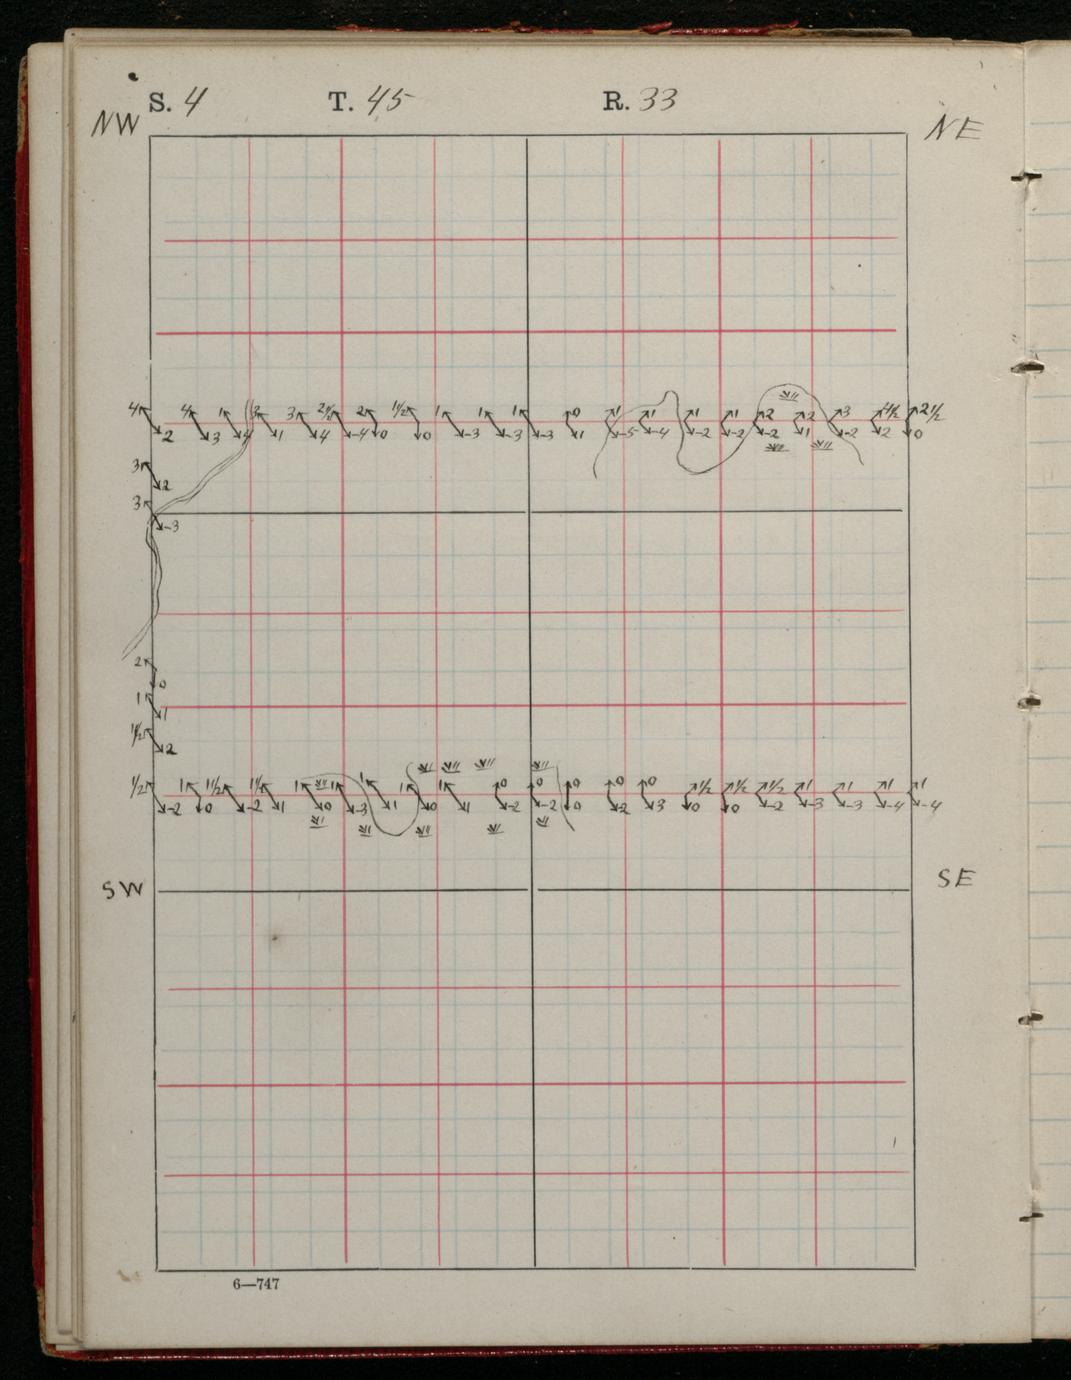 S. 4 T. 45 R. 33
NW NE
4 4 1 3 3 2½ 2 1½ 1 1 1 0 1 1 1 1 2 2 3 1½ 2½
2 3 4 1 4 -4 0 0 -3 -3 -3 1 -5 -4 -2 -2 -2 1 -2 2 0
3
2
3
-3
2
0
1
1
1½
2
½ 1 1½ 1½ 1 1 1 1 1 0 0 0 0 0 ½ ½ ½ 1 1 1 1
-2 0 -2 1 0 -3 1 0 1 -2 -2 0 2 3 0 0 -2 -3 -3 -4 -4
SW SE
6—747